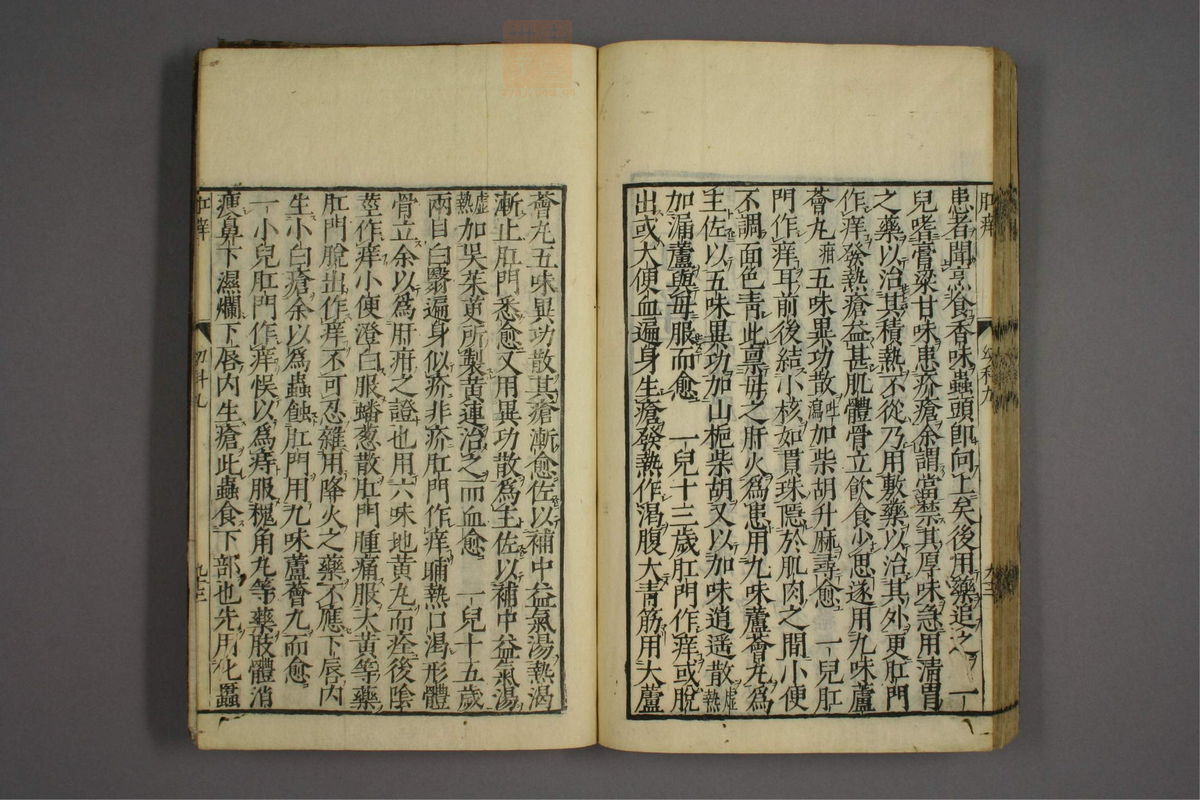 肛痒
幼科九
九十三
患者聞烹食香味蟲頭即向上矣後用藥追之　一
兒嗜膏粱甘味患疥瘡余謂當禁其厚味急用清胃
之藥以治其積熱不從乃用敷藥以治其外更肛門
作痒發熱瘡益甚肌體骨立飲食少思遂用九味蘆
薈丸疳五味異功散吐瀉加柴胡升麻尋愈　一兒肛
門作痒耳前後結小核如貫珠隱於肌肉之間小便
不調面色青此稟母之肝火為患用九味蘆薈丸為
主佐以五味異功加山梔柴胡又以加味逍遥散虛熱
加漏蘆與母服而愈　一兒十三歲肛門作痒或脫
出或大便血遍身生瘡發熱作渴腹大青筋用大蘆
薈丸五味異功散其瘡漸愈佐以補中益氣湯熱渴
漸止肛門悉愈又用異功散為主佐以補中益氣湯
虛熱加吳茱萸所製黃連治之而血愈　一兒十五歲
兩目白翳遍身似疥非疥肛門作痒晡熱口渴形體
骨立余以為肝疳之證也用六味地黃丸而痊後陰
莖作痒小便澄白服蟠葱散肛門腫痛服大黃等藥
肛門脫出作痒不可忍雜用降火之藥不應下唇内
生小白瘡余以為蟲蝕肛門用九味蘆薈丸而愈
一小兒肛門作痒悞以為痔服槐角丸等藥肢體消
瘦鼻下濕爛下唇内生瘡此蟲食下部也先用化䘌
肛痒
幼科九
九十三